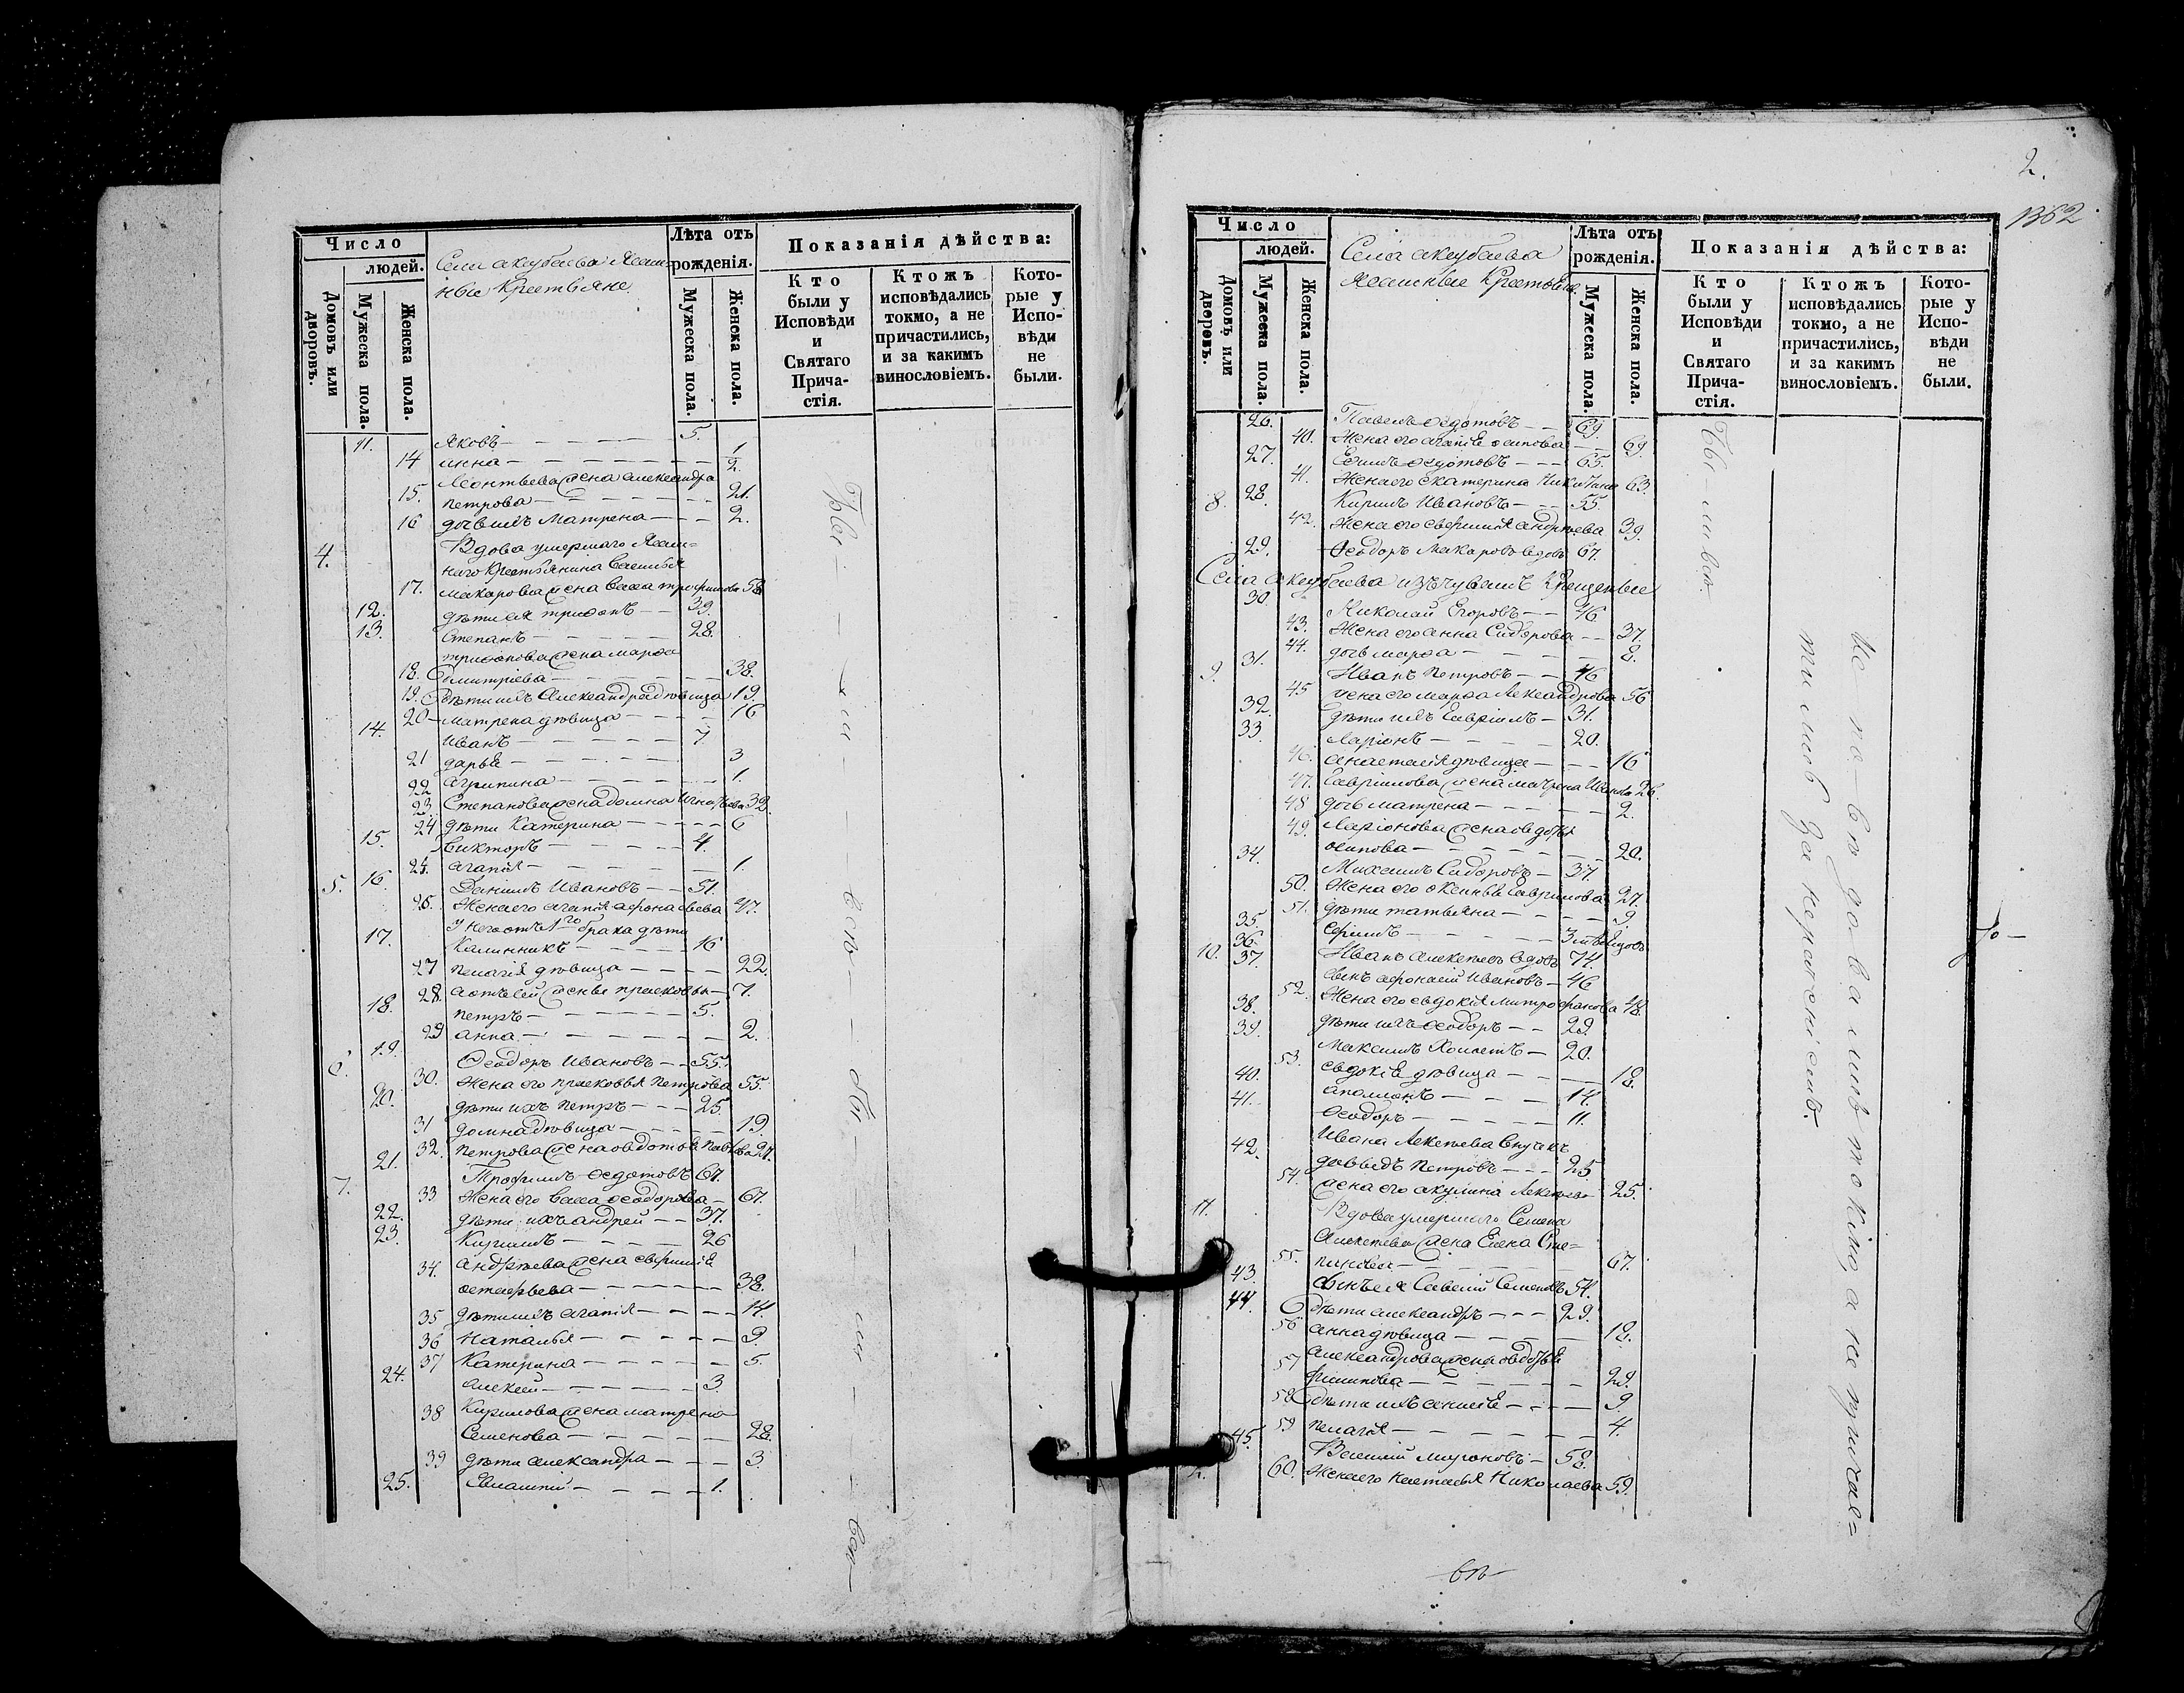 Число
людей.
Домовъ или дворовъ.
Мужеска пола.
Женска пола.
Села акеубаева Ясаш-
ные Крестьяне.
Лѣта отъ
рожденія.
Мужеска пола.
Женска пола.
Показанія дѣйства:
Кто
были у
Исповѣди
и
Святаго
Прича-
стія.
Ктожъ
исповѣдались
токмо, а не
причастились,
и за какимъ
винословіемъ.
Кото-
рые у
Испо-
вѣди
не
были.
11. Яковъ 5.
14 анна 1/2.
Леонтьева жена александра
15. петрова 21.
16 дочь ихъ Матрена 2.
4. Вдова умершаго Ясаш=
наго Крестьянина Василья
17. макарова жена васса трофимова 58
12. дѣти ея трифонъ 39.
13. Степанъ 28.
трифонова жена марфа
18. дмитріева 38.
19. дѣти ихъ Александра дѣвица 19.
20 матрена дѣвица 16
14. Иванъ 7.
21 дарья 3
22 агрипина 1.
23. Степанова жена домна 32.
24 дѣти Катерина 6
15. Викторъ 4.
25. агапія 1.
5. 16. Даніилъ Ивановъ 51.
26. Жена его агапія афонасьева 47.
У него отъ 1го брака дѣти
17. Калинникъ 16
27 пелагія дѣвица 22.
28. прасковья 7.
18. петръ 5.
29 анна 2.
6. 19. Ѳеодоръ Ивановъ 55.
30. Жена его прасковья Петрова 55.
20. дѣти ихъ петръ 25.
31 домна дѣвица 19
32. петрова жена овдотья
7. 21. Трофимъ Ѳедотовъ 67.
33 Жена его васса ѳеодорова 67.
22. дѣти ихъ андрей 37.
23. Кирилъ 26
34. андреева жена
38.
35 дѣти ихъ агапія 14.
36 Наталья 9.
37 Катерина 5.
24. алексей 3.
38 Кирилова жена матрена
Семенова 28.
39 дѣти александра 3.
25. 1.
Бы — ли — всѣ — бы — ли — всѣ
2.
1362
Число
людей.
Домовъ или дворовъ.
Мужеска пола.
Женска пола.
Села акеубаева
Ясашные Крестьяне.
Лѣта отъ
рожденія.
Мужеска пола.
Женска пола.
Показанія дѣйства:
Кто
были у
Исповѣди
и
Святаго
Прича-
стія.
Ктожъ
исповѣдались
токмо, а не
причастились,
и за какимъ
винословіемъ.
Кото-
рые у
Испо-
вѣди
не
были.
26. Павелъ Ѳедотовъ 69.
40. Жена его агапія осипова 69.
27. Ѳедотовъ 65.
41. Жена его екатерина 63.
8. 28. Кирилъ Ивановъ 55.
42. Жена его андреева 39.
29. Ѳеодоръ Макаровъ вдовъ 67.
Села акеубаева изъ чувашъ Крещеные
30. Николай Егоровъ 46
43. Жена его анна Сидорова 37.
44. дочь марфа 8.
9. 31. Иванъ Петровъ 46
45 жена его марфа Александрова 56
32. дѣти ихъ Гавріилъ 31.
33. Ларіонъ 20.
46. анастасія дѣвица 16
47. Гавріилова жена матрена Иванова 26.
48 дочь матрена 2.
49. Ларіонова жена овдотья
осипова 20.
34. Михаилъ Сидоровъ 37.
50. Жена его Гаврилова 27.
51. дѣти татьяна 9.
35. 3
10. 36. Иванъ алексеевъ вдовъ 74.
37. сынъ афонасій Ивановъ 46
52. Жена его евдокія Митрофанова 48.
38. дѣти ихъ Ѳеодоръ 29.
39. Максимъ Холостъ 20.
53. евдокія дѣвица 18.
40. аполлонъ 14.
41. Ѳеодоръ 11.
Ивана Алексеева внукъ
42. давыдъ Петровъ 25
54. жена его акулина Алексеева 25.
11. Вдова умершаго Семена
Алексеева жена Елена Сте=
55. панова 67.
43. сынъ ея Савелій Семеновъ 54.
44. дѣти александръ 29.
56 анна дѣвица 18.
александрова жена овдотья
57 филипова 29.
58 дѣти ихъ 9.
59 пелагія 4.
45. Василий мироновъ 58.
60. Жена его наталья Николаева 59.
Бы — ли всѣ.
Исповѣдались токмо, а не причас=
тились за нерачениемъ.